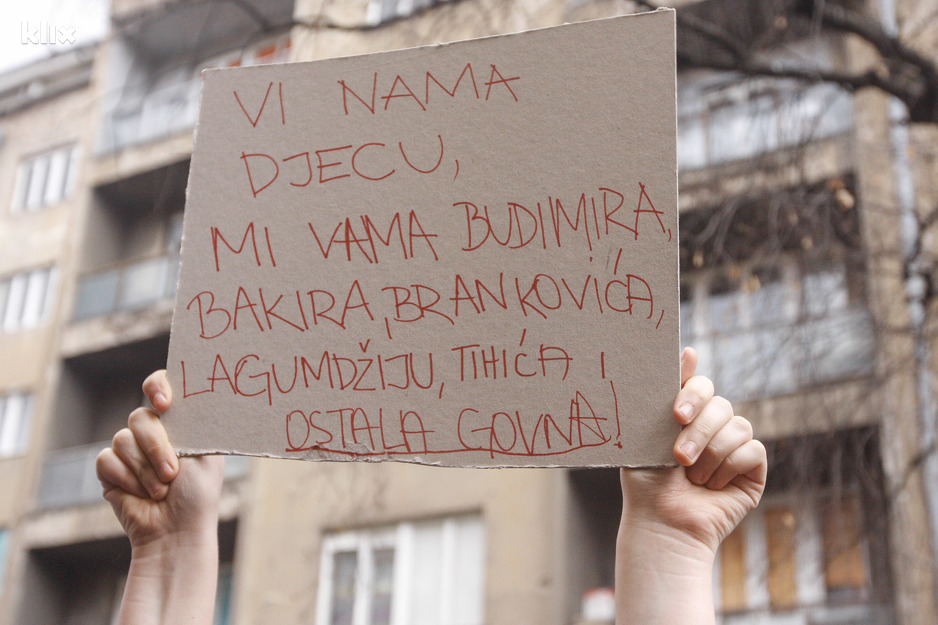 klix
VI NAMA
DJECU,
MI VAMA BUDIMIRA,
BAKIRA, BRANKOVIĆA,
LAGUMDŽIJU, TIHIĆA I
OSTALA GOVNA!